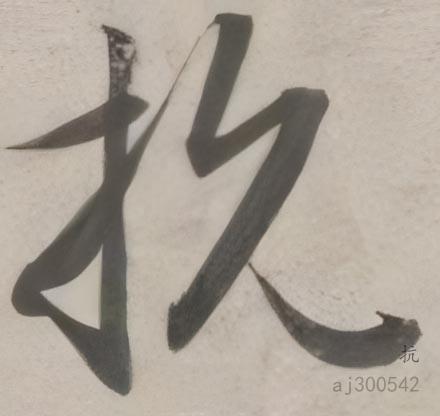 抗
抗
aj300542